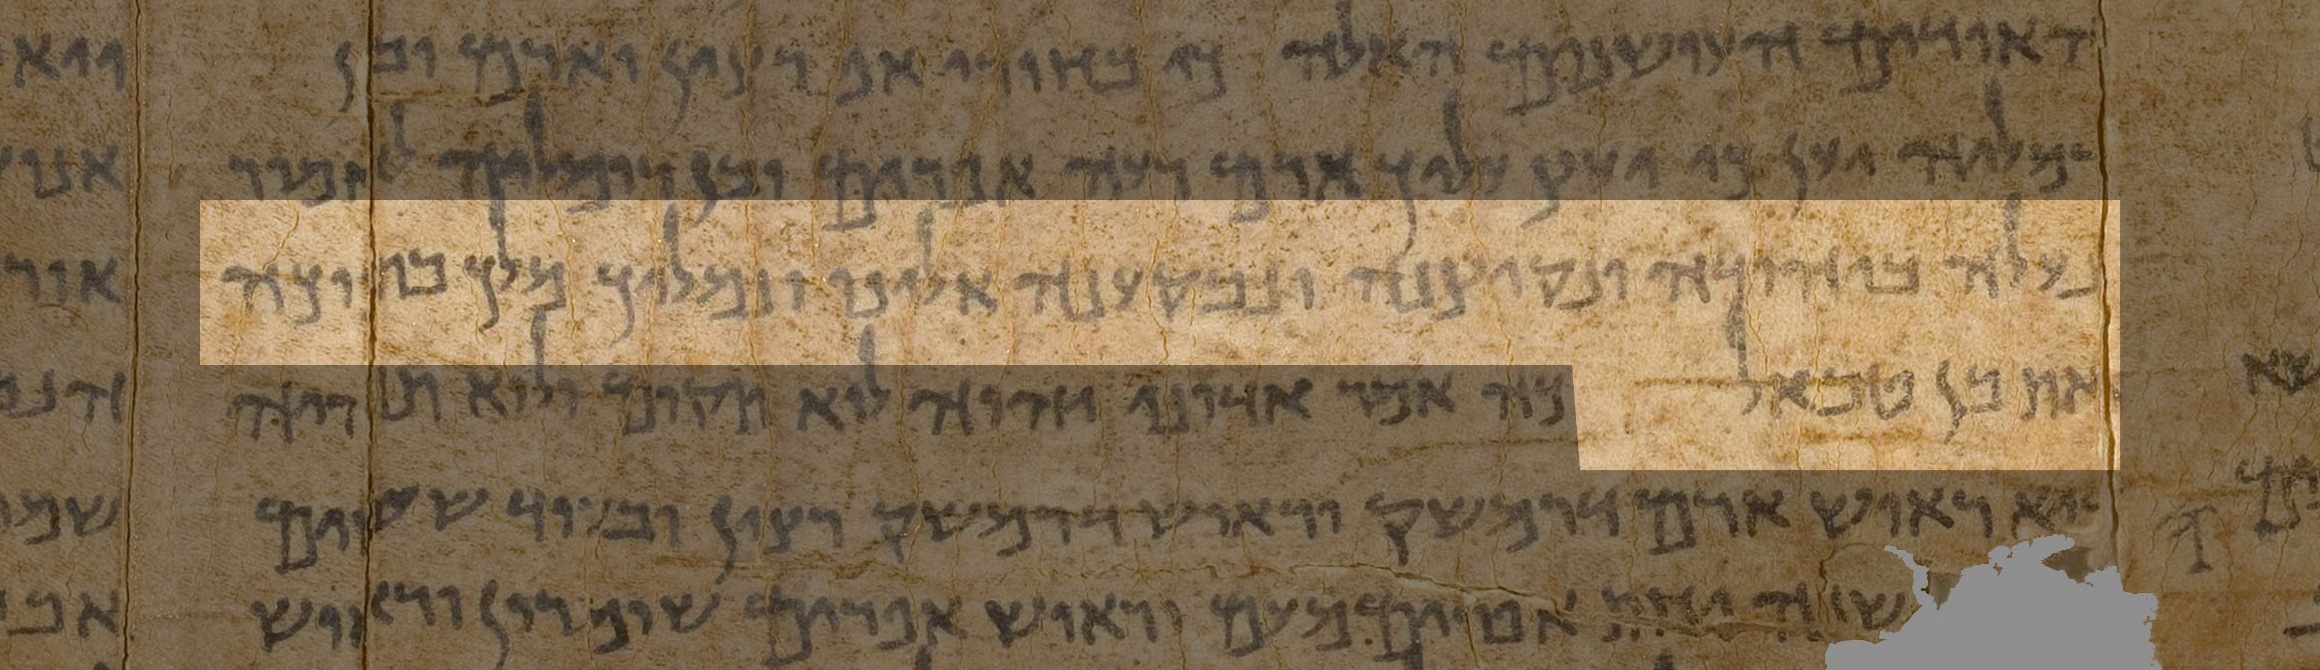 האודים העושנים האלה כי בחורי אף רצין וארם ובן
רמליה יען כי יעץ עליך ארם רעה אפרים ובן רומליה לאמר
נעלה ביהודה ונקיצנה ונבקענה אלינו ונמליך מלך בתוכה
את בן טבאל כוה אמר אדוני יהוה לוא תקום ולוא תהיה
כיא ראוש ארם דרמשק וראוש דרמשק רצין ובעוד ששים
שנה יחת אפרים מעם וראוש אפרים שומרון וראוש